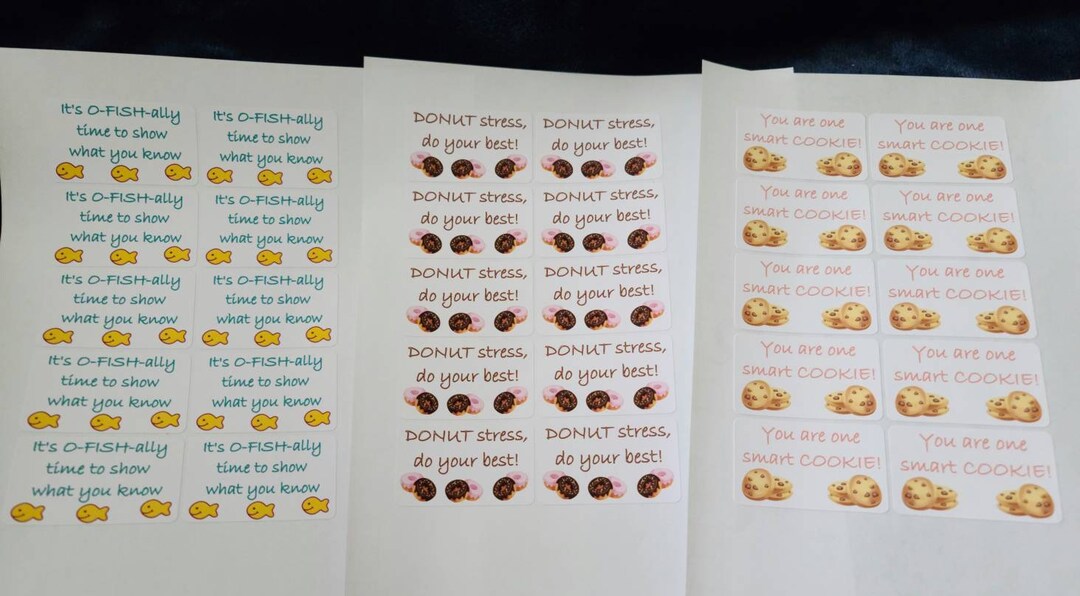 It's O-FISH-ally
time to show
what you know
It's O-FISH-ally
time to show
what you know
It's O-FISH-ally
time to show
what you know
It's O-FISH-ally
time to show
what you know
It's O-FISH-ally
time to show
what you know
It's O-FISH-ally
time to show
what you know
It's O-FISH-ally
time to show
what you know
It's O-FISH-ally
time to show
what you know
It's O-FISH-ally
time to show
what you know
It's O-FISH-ally
time to show
what you know
DONUT stress,
do your best!
DONUT stress,
do your best!
DONUT stress,
do your best!
DONUT stress,
do your best!
DONUT stress,
do your best!
DONUT stress,
do your best!
DONUT stress,
do your best!
DONUT stress,
do your best!
DONUT stress,
do your best!
DONUT stress,
do your best!
You are one
smart COOKIE!
You are one
smart COOKIE!
You are one
smart COOKIE!
You are one
smart COOKIE!
You are one
smart COOKIE!
You are one
smart COOKIE!
You are one
smart COOKIE!
You are one
smart COOKIE!
You are one
smart COOKIE!
You are one
smart COOKIE!